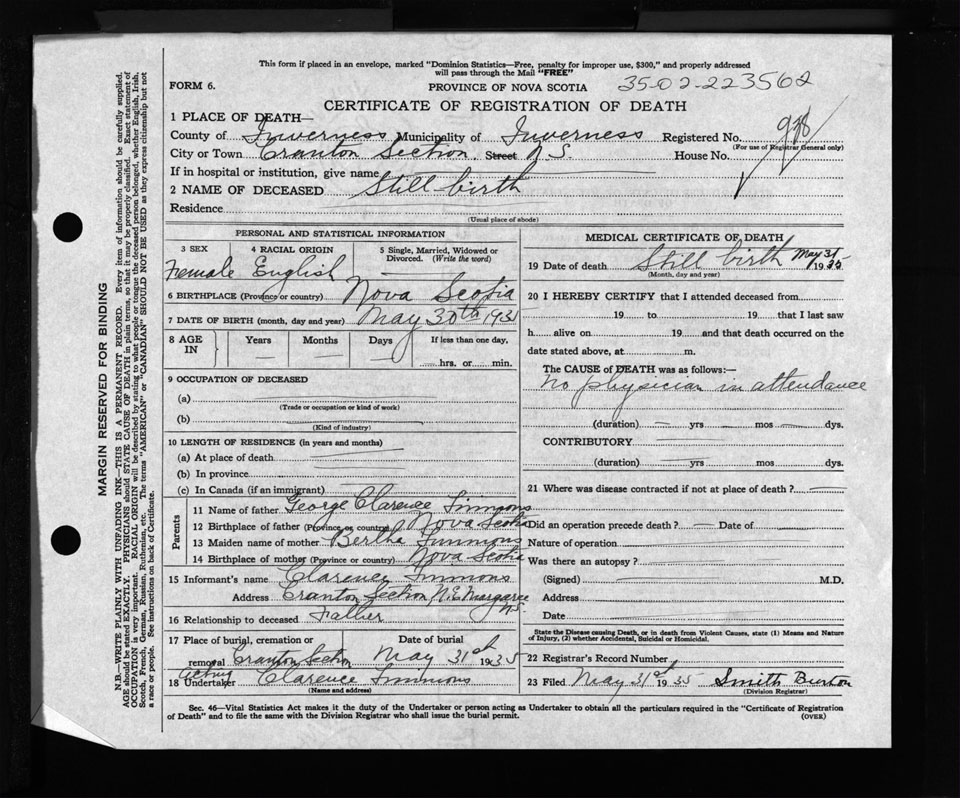 This form if placed in an envelope, marked "Dominion Statistics—Free, penalty for improper use, $300," and properly addressed
will pass through the Mail "FREE"
FORM 6.
PROVINCE OF NOVA SCOTIA
35-02-223562
CERTIFICATE OF REGISTRATION OF DEATH
1 PLACE OF DEATH—
County of Inverness Municipality of Inverness Registered No.
(For use of Registrar General only)
City or Town Cranton Section Street N.S. House No.
If in hospital or institution, give name
2 NAME OF DECEASED Still birth
Residence
(Usual place of abode)
PERSONAL AND STATISTICAL INFORMATION
3 SEX Female
4 RACIAL ORIGIN English
5 Single, Married, Widowed or Divorced. (Write the word) —
6 BIRTHPLACE (Province or country) Nova Scotia
7 DATE OF BIRTH (month, day and year) May 30th 1931
8 AGE IN
Years —
Months —
Days —
If less than one day,
hrs. or min.
9 OCCUPATION OF DECEASED
(a)
(Trade or occupation or kind of work)
(b)
(Kind of industry)
10 LENGTH OF RESIDENCE (in years and months)
(a) At place of death
(b) In province
(c) In Canada (if an immigrant)
Parents
11 Name of father George Clarence Timmons
12 Birthplace of father (Province or country) Nova Scotia
13 Maiden name of mother Bertha Timmons
14 Birthplace of mother (Province or country) Nova Scotia
15 Informant's name Clarence Timmons
Address Cranton Section N.E. Margaree N.S.
16 Relationship to deceased Father
17 Place of burial, cremation or
removal Cranton Section
Date of burial
May 31st 1935
acting
18 Undertaker Clarence Timmons
(Name and address)
MEDICAL CERTIFICATE OF DEATH
19 Date of death Still birth May 31 1935
(Month, day and year)
20 I HEREBY CERTIFY that I attended deceased from
19 to 19 that I last saw
h alive on 19 and that death occurred on the
date stated above, at m.
The CAUSE of DEATH was as follows:—
no physician in attendance
(duration) — yrs — mos — dys.
CONTRIBUTORY
(duration) yrs mos dys.
21 Where was disease contracted if not at place of death?
Did an operation precede death? — Date of
Nature of operation
Was there an autopsy?
(Signed) M.D.
Address
Date
State the Disease causing Death, or in death from Violent Causes, state (1) Means and Nature
of Injury, (2) whether Accidental, Suicidal or Homicidal.
22 Registrar's Record Number
23 Filed May 31st 1935 Smith Burton
(Division Registrar)
Sec. 46—Vital Statistics Act makes it the duty of the Undertaker or person acting as Undertaker to obtain all the particulars required in the "Certificate of Registration
of Death" and to file the same with the Division Registrar who shall issue the burial permit.
(OVER)
MARGIN RESERVED FOR BINDING
N.B.—WRITE PLAINLY WITH UNFADING INK—THIS IS A PERMANENT RECORD. Every item of information should be carefully supplied.
AGE should be stated EXACTLY. PHYSICIANS should STATE CAUSE OF DEATH in plain terms, so that it may be properly classified. Exact statement of
OCCUPATION is very important. RACIAL ORIGIN will be described by stating to what people or tongue the deceased person belonged, whether English, Irish,
Scotch, French, German, Russian, Ruthenian, etc. The terms "AMERICAN" or "CANADIAN" SHOULD NOT BE USED as they express citizenship but not
a race or people. See instructions on back of Certificate.